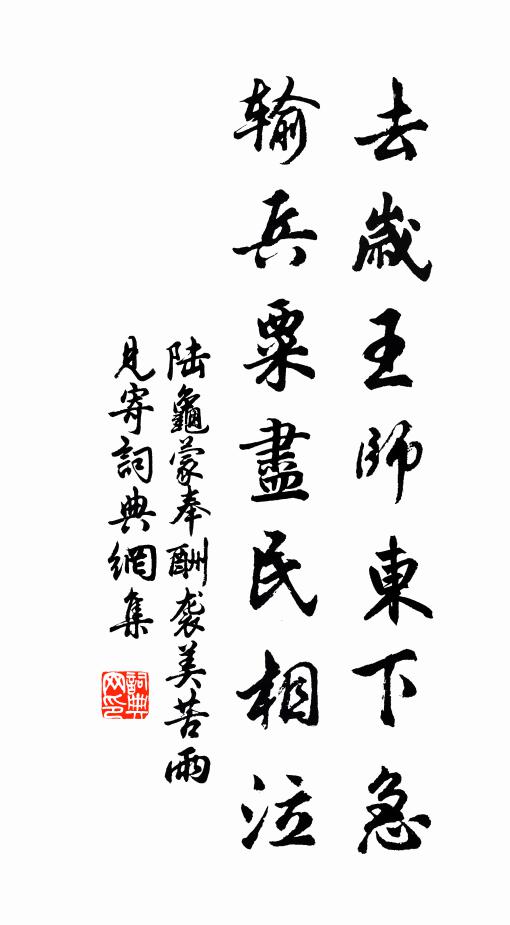 去歲王師東下急
输兵粟盡民相泣
陆龜蒙奉酬袭美苦雨
見寄詞典網集
詞典
网印